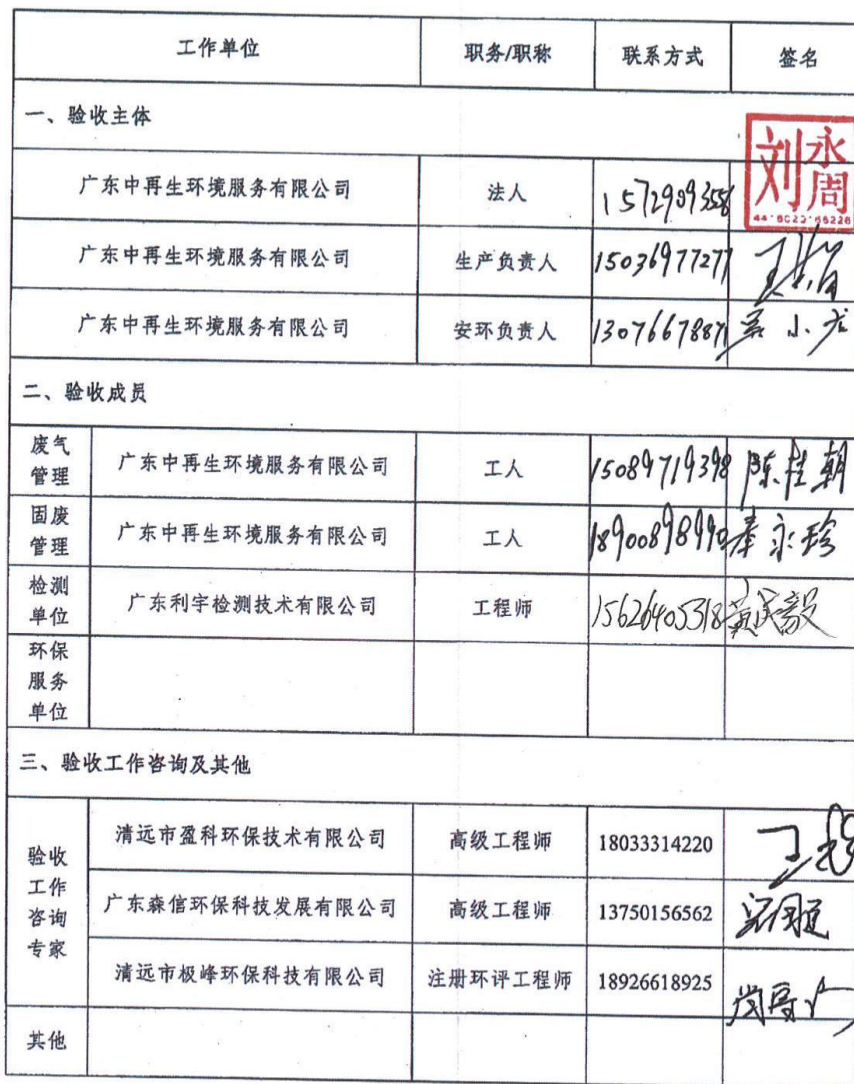 工作单位 职务/职称 联系方式 签名
一、验收主体
广东中再生环境服务有限公司 法人 刘永周
广东中再生环境服务有限公司 生产负责人 15036977277
广东中再生环境服务有限公司 安环负责人 13076678871
二、验收成员
废气管理 广东中再生环境服务有限公司 工人 15089719398 陈桂朝
固废管理 广东中再生环境服务有限公司 工人 18900898990 秦永珍
检测单位 广东利宇检测技术有限公司 工程师 15626405318
环保服务单位
三、验收工作咨询及其他
验收工作咨询专家
清远市盈科环保技术有限公司 高级工程师 18033314220
广东森信环保科技发展有限公司 高级工程师 13750156562
清远市极峰环保科技有限公司 注册环评工程师 18926618925
其他